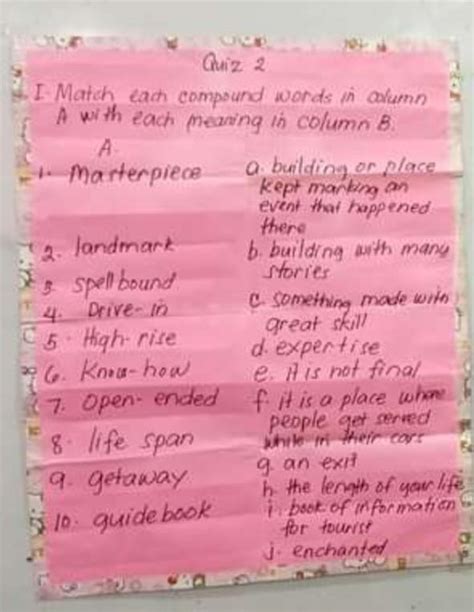 Quiz 2
I. Match each compound words in column
A with each meaning in column B.
A.
1. Masterpiece
a. building or place
kept marking an
event that happened
there
2. landmark
b. building with many
stories
3. spellbound
c. something made with
great skill
4. Drive-in
5. High-rise
d. expertise
6. Know-how
e. it is not final
7. Open-ended
f. it is a place where
people get served
while in their cars
8. life span
g. an exit
9. getaway
h. the length of your life
i. book of information
for tourist
10. guidebook
j. enchanted